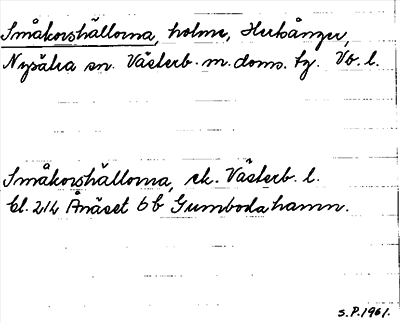 Småkorshällorna, holme, Herkånger,
Nysätra sn. Västerb. m. doms. tg. Vb. l.
Småkorshällorna, ek. Västerb. l.
bl. 214 Ånäset 6b Gumboda hamn.
S.P. 1961.